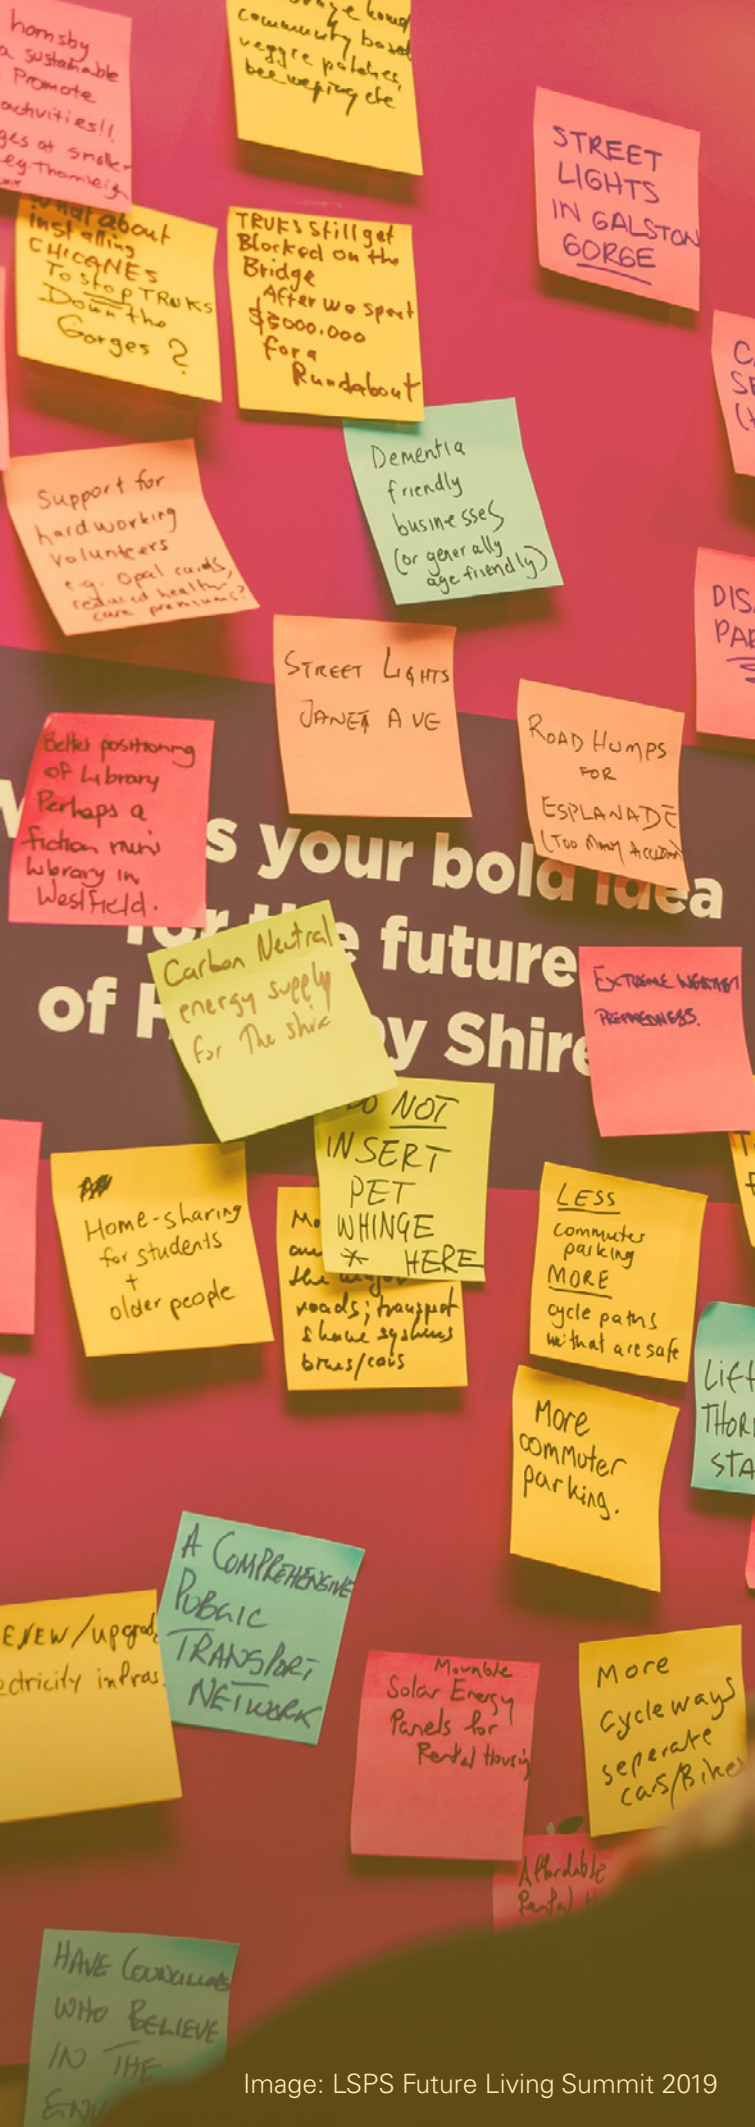 hornsby
a sustainable
Promote
activities!!
ges at smaller
eg. Thornleigh
community based
veggie patches,
bee keeping etc
STREET
LIGHTS
IN GALSTON
GORGE
What about
installing
CHICANES
To stop TRUKS
Down the
Gorges ?
TRUKS still get
Blocked on the
Bridge
After we spent
$5000.000
for a
Rundabout
Dementia
friendly
businesses
(or generally
age friendly)
Support for
hardworking
volunteers
e.g. Opal cards,
reduced health-
care premiums?
DIS
PA
STREET LIGHTS
JANET AVE
ROAD HUMPS
FOR
ESPLANADE
(TOO MANY
Better positioning
of Library
Perhaps a
fiction mini
Library in
Westfield.
s your bold idea
for the future
of H by Shire
Carbon Neutral
energy supply
for The shire
EXTREME WEATHER
PREPAREDNESS.
DO NOT
INSERT
PET
WHINGE
* HERE
Home-sharing
for students
+
older people
the major
roads; transport
systems
LESS
commuter
parking
MORE
cycle paths
that are safe
Lift
THOR
STA
More
commuter
parking.
A COMPREHENSIVE
PUBLIC
TRANSPORT
NETWORK
ENEW/upgrad
ctricity infras.
Movable
Solar Energy
Panels for
Rental Housin
More
Cycleways
seperate
cars/Bike
Affordable
Rental H
HAVE COUNCILLORS
WHO BELIEVE
IN THE
ENV
Image: LSPS Future Living Summit 2019